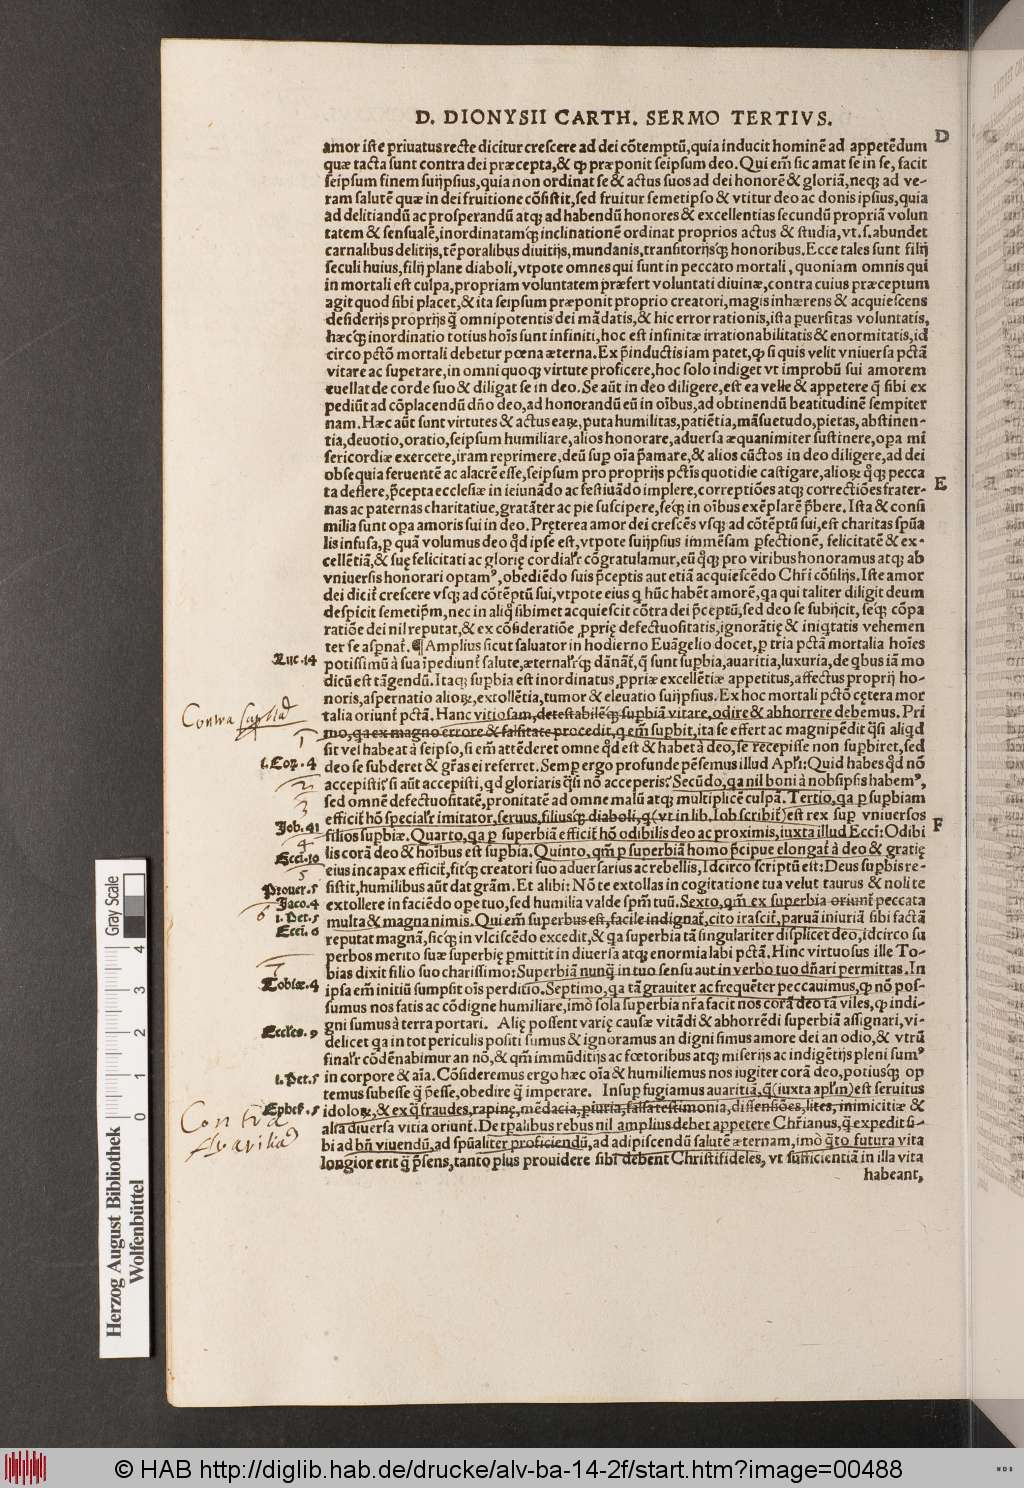 D. DIONYSII CARTH. SERMO TERTIVS.
amor iste priuatus recte dicitur crescere ad dei cōtemptū, quia inducit hominē ad appetēdum
D
quæ tacta sunt contra dei præcepta, & qꝫ præponit seipsum deo. Qui em̄ sic amat se in se, facit
seipsum finem suijpsius, quia non ordinat se & actus suos ad dei honorē & gloriā, neqꝫ ad ve-
ram salutē quæ in dei fruitione cōsistit, sed fruitur semetipso & vtitur deo ac donis ipsius, quia
ad delitiandū ac prosperandū atqꝫ ad habendū honores & excellentias secundū propriā volun
tatem & sensualē, inordinatamqꝫ inclinationē ordinat proprios actus & studia, vt.s. abundet
carnalibus delitijs, tēporalibus diuitijs, mundanis, transitorijsqꝫ honoribus. Ecce tales sunt filij
seculi huius, filij plane diaboli, vtpote omnes qui sunt in peccato mortali, quoniam omnis qui
in mortali est culpa, propriam voluntatem præfert voluntati diuinæ, contra cuius præceptum
agit quod sibi placet, & ita seipsum præponit proprio creatori, magis inhærens & acquiescens
desiderijs proprijs q̄ omnipotentis dei mādatis, & hic error rationis, ista puersitas voluntatis,
hæcqꝫ inordinatio totius hoīs sunt infiniti, hoc est infinitæ irrationabilitatis & enormitatis, id
circo pctō mortali debetur pœna æterna. Ex p̄inductis iam patet, qꝫ si quis velit vniuersa pctā
vitare ac superare, in omni quoqꝫ virtute proficere, hoc solo indiget vt improbū sui amorem
euellat de corde suo & diligat se in deo. Se aūt in deo diligere, est ea velle & appetere q̄ sibi ex
pediūt ad cōplacendū dn̄o deo, ad honorandū eū in oībus, ad obtinendū beatitudinē sempiter
nam. Hæc aūt sunt virtutes & actus eaꝝ, puta humilitas, patiētia, māsuetudo, pietas, abstinen-
tia, deuotio, oratio, seipsum humiliare, alios honorare, aduersa æquanimiter sustinere, opa mi
sericordiæ exercere, iram reprimere, deū sup oīa p̄amare, & alios cūctos in deo diligere, ad dei
obsequia feruentē ac alacrē esse, seipsum pro proprijs pctīs quotidie castigare, alioꝝ qꝫ pecca
E
ta deflere, p̄cepta ecclesiæ in ieiunādo ac festiuādo implere, correptiōes atqꝫ correctiōes frater-
nas ac paternas charitatiue, gratāter ac pie suscipere, seqꝫ in oībus exēplarē p̄bere. Ista & consi
milia sunt opa amoris sui in deo. Pręterea amor dei crescēs vsqꝫ ad cōtēptū sui, est charitas spūa
lis infusa, p quā volumus deo qđ ipse est, vtpote suijpsius immēsam pfectionē, felicitatē & ex-
cellētiā, & suę felicitati ac glorię cordialr̄ cōgratulamur, eū qꝫ pro viribus honoramus atqꝫ ab
vniuersis honorari optamꝰ, obediēdo suis p̄ceptis aut etiā acquiescēdo Chr̄i cōsilijs. Iste amor
dei dicit̄ crescere vsqꝫ ad cōtēptū sui, vtpote eius q hūc habēt amorē, qa qui taliter diligit deum
despicit semetip̄m, nec in aliq̄ sibimet acquiescit cōtra dei p̄ceptū, sed deo se subijcit, seqꝫ cōpa
ratiōe dei nil reputat, & ex cōsideratiōe pprię defectuositatis, ignorātię & iniqtatis vehemen
ter se aspnat̄. ¶ Amplius sicut saluator in hodierno Euāgelio docet, p tria pctā mortalia hoīes
Luc.14
potissimū à sua īpediunt̄ salute, æternalr̄qꝫ dānāt̄, q̄ sunt supbia, auaritia, luxuria, de qbus iā mo
dicū est tāgendū. Itaqꝫ supbia est inordinatus ppriæ excellētiæ appetitus, affectus proprij ho-
noris, aspernatio alioꝝ, extollētia, tumor & eleuatio suijpsius. Ex hoc mortali pctō cętera mor
Contra Supbia
talia oriunt̄ pctā. Hanc vitiosam, detestabilēqꝫ supbiā vitare, odire & abhorrere debemus. Pri
1
mo, qa ex magno errore & falsitate procedit, q em̄ supbit, ita se effert ac magnipēdit q̄si aliqd
sit vel habeat à seipso, si em̄ attēderet omne qđ est & habet à deo, se recepisse non supbiret, sed
1.Cor.4
deo se subderet & gr̄as ei referret. Semp ergo profunde pēsemus illud Apl̄i: Quid habes qđ nō
2
accepisti? si aūt accepisti, qd gloriaris q̄si nō acceperis? Secūdo, qa nil boni à nobsipsis habemꝰ,
3
sed omnē defectuositatē, pronitatē ad omne malū atqꝫ multiplicē culpā. Tertio, qa p supbiam
efficit̄ hō specialr̄ imitator, seruus, filiusqꝫ diaboli, q (vt in lib. Iob scribit̄) est rex sup vniuersos
Job.41
F
filios supbiæ. Quarto, qa p superbiā efficit̄ hō odibilis deo ac proximis, iuxta illud Ecci: Odibi
4
lis corā deo & hoībus est supbia. Quinto, qm̄ p superbiā homo p̄cipue elongat̄ à deo & gratię
Ecci.10
5
eius incapax efficit̄, fitqꝫ creatori suo aduersarius ac rebellis, Idcirco scriptū est: Deus supbis re-
Prouer.5
sistit, humilibus aūt dat grām. Et alibi: Nō te extollas in cogitatione tua velut taurus & noli te
Jaco.4
extollere in faciēdo ope tuo, sed humilia valde spm̄ tuū. Sexto, qm̄ ex superbia oriunt̄ peccata
6
1.Pet.5
multa & magna nimis. Qui em̄ superbus est, facile indignat̄, cito irascit̄, paruā iniuriā sibi factā
Ecci.6
reputat magnā, sicqꝫ in vlciscēdo excedit, & qa superbia tā singulariter displicet deo, idcirco su
perbos merito suæ superbię pmittit in diuersa atqꝫ enormia labi pctā. Hinc virtuosus ille To-
7
bias dixit filio suo charissimo: Superbiā nunqꝫ in tuo sensu aut in verbo tuo dn̄ari permittas. In
Tobiæ.4
ipsa em̄ initiū sumpsit oīs perditio. Septimo, qa tā grauiter ac frequēter peccauimus, qꝫ nō pos-
sumus nos satis ac cōdigne humiliare, imò sola superbia nr̄a facit nos corā deo tā viles, qꝫ indi-
gni sumus à terra portari. Alię possent varię causæ vitādi & abhorrēdi superbiā assignari, vi-
Eccles.9
delicet qa in tot periculis positi sumus & ignoramus an digni simus amore dei an odio, & vtrū
finalr̄ cōdēnabimur an nō, & qm̄ immūditijs ac fœtoribus atqꝫ miserijs ac indigētijs pleni sumꝰ
1.Pet.5
in corpore & aīa. Cōsideremus ergo hæc oīa & humiliemus nos iugiter corā deo, potiusqꝫ op
temus subesse q̄ p̄esse, obedire q̄ imperare. Insup fugiamus auaritiā, q̄ (iuxta apl̄m) est seruitus
Ephes.5
Contra
Avaritiā
idoloꝝ, & ex q̄ fraudes, rapinę, mēdacia, piuria, falsa testimonia, dissensiōes, lites, inimicitiæ &
alia diuersa vitia oriunt̄. De tpalibus rebus nil amplius debet appetere Chr̄ianus, q̄ expedit si-
bi ad bn̄ viuendū, ad spūaliter proficiendū, ad adipiscendū salutē æternam, imò q̄to futura vita
longior erit q̄ p̄sens, tanto plus prouidere sibi debent Christifideles, vt sufficientiā in illa vita
habeant,
Herzog August Bibliothek
Wolfenbüttel
0 1 2 3 4
Gray Scale
© HAB http://diglib.hab.de/drucke/alv-ba-14-2f/start.htm?image=00488